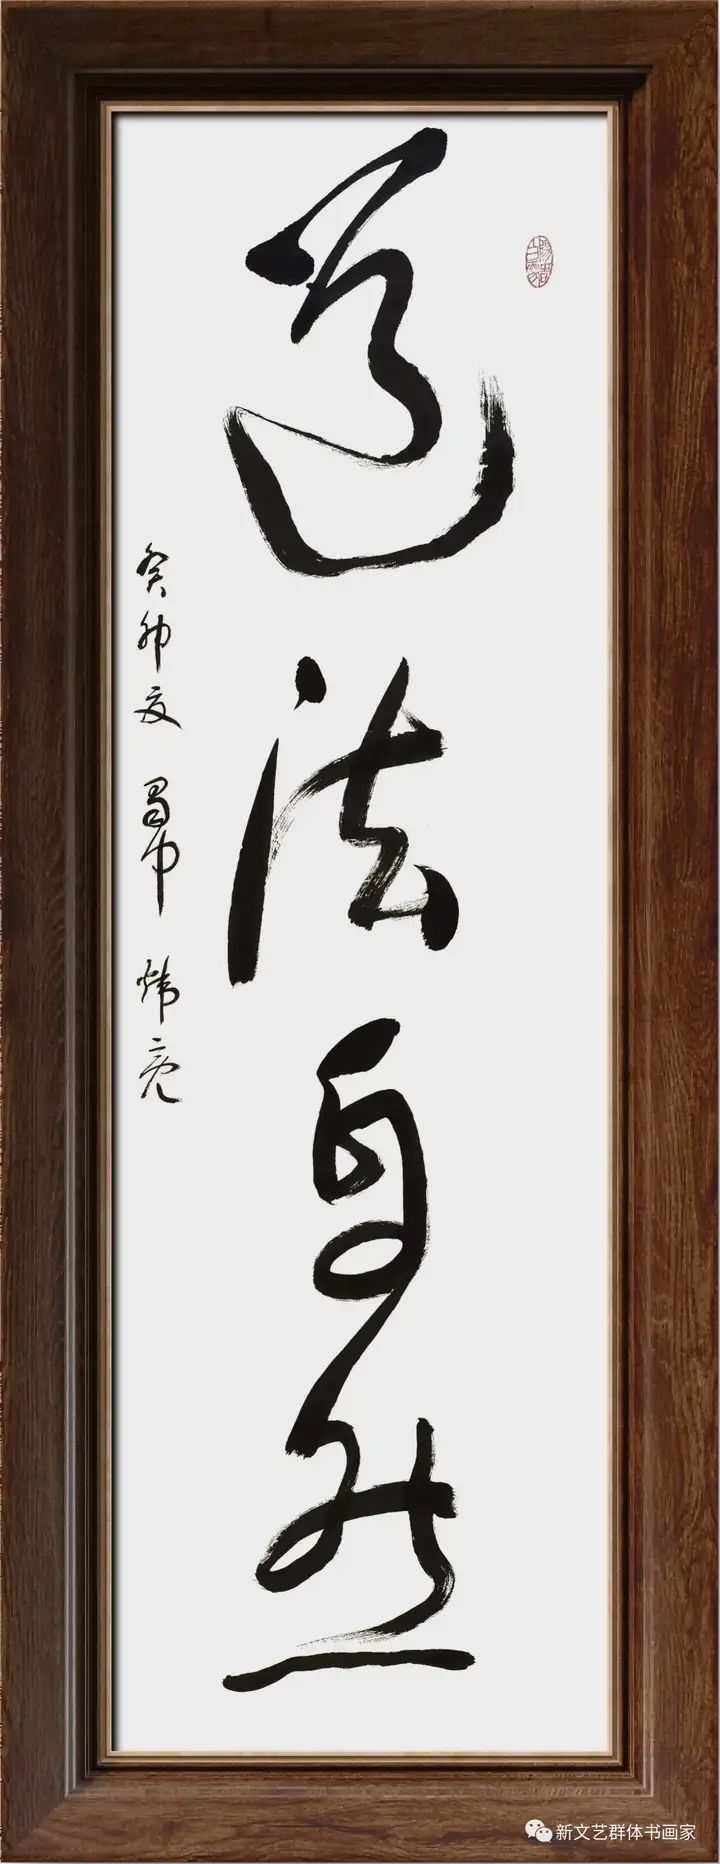 道法自然
癸卯夏 蜀中 炜亮
新文艺群体书画家